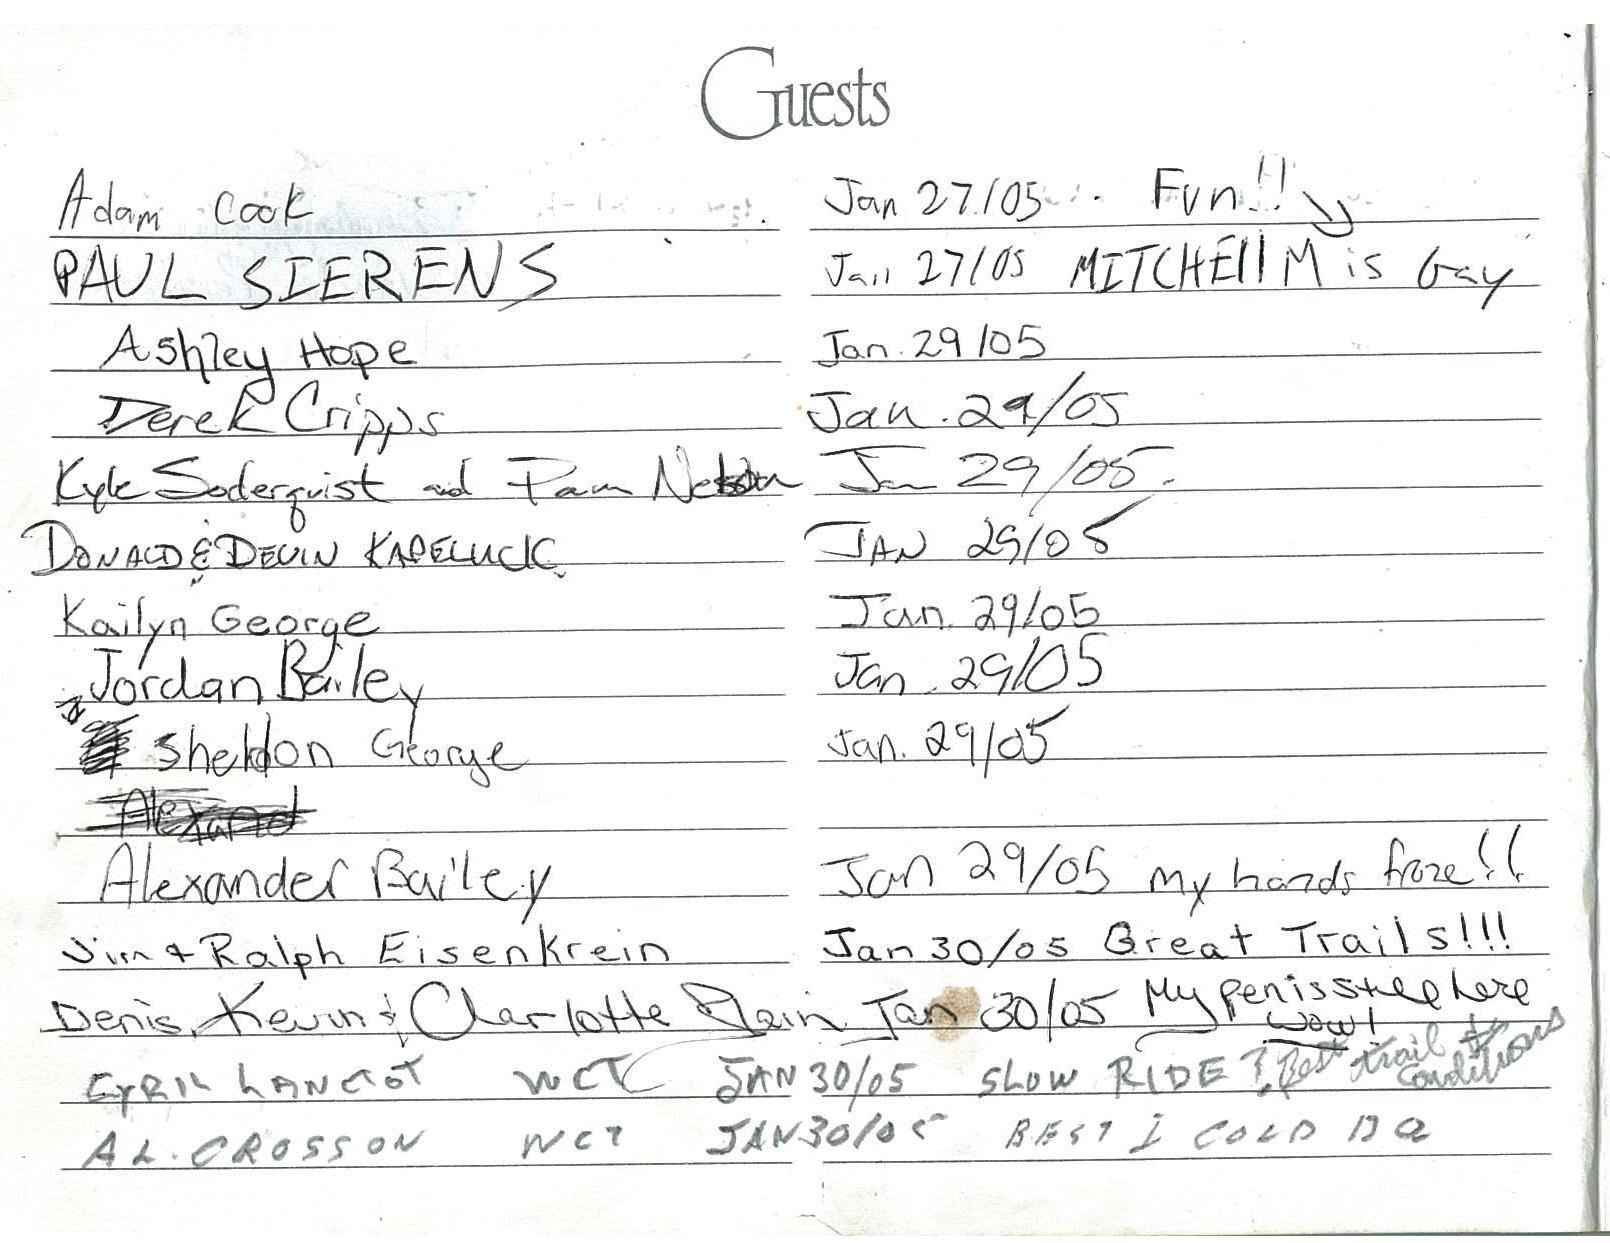 Guests
Adam Cook Jan 27/05 Fun!!
PAUL SIERENS Jan 27/05 MITCHEll M is Gay
Ashley Hope Jan. 29/05
Derek Cripps Jan. 29/05
Kyle Soderquist and Pam Nelson Jan 29/05.
DONALD & DEVIN KAPELUCK JAN 29/05
Kailyn George Jan. 29/05
Jordan Bailey Jan. 29/05
Sheldon George Jan. 29/05
Alexander Bailey Jan 29/05 My hands froze!!
Jim & Ralph Eisenkrein Jan 30/05 Great Trails!!!
Denis, Kevin & Charlotte Jan 30/05 My penis here
wow!
LANCTOT WCT JAN 30/05 SLOW RIDE Best trail & conditions
AL. CROSSON WCT JAN 30/05 BEST I COLD